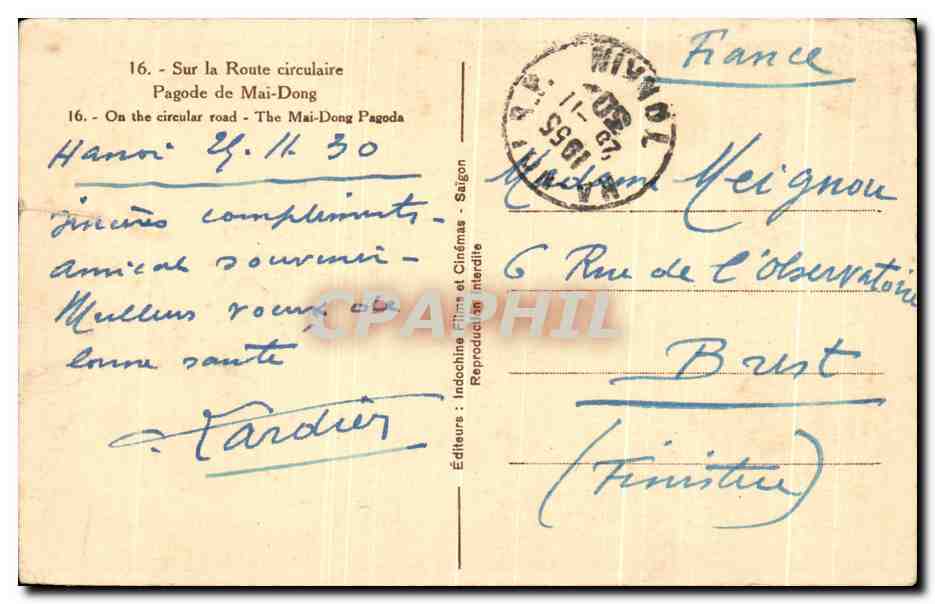 16. - Sur la Route circulaire
Pagode de Mai-Dong
16. - On the circular road - The Mai-Dong Pagoda
Hanoi 25.11.30
Sincères compliments -
Amical souvenir -
Meilleurs voeux de
bonne santé
Tardier
Editeurs : Indochine Films et Cinémas - Saïgon
Reproduction Interdite
HANOI R.P.
1955
28 - 11
30
TONKIN
France
Madame Meignou
6 Rue de l'Observatoire
Brest
(Finistère)
CPAPHIL